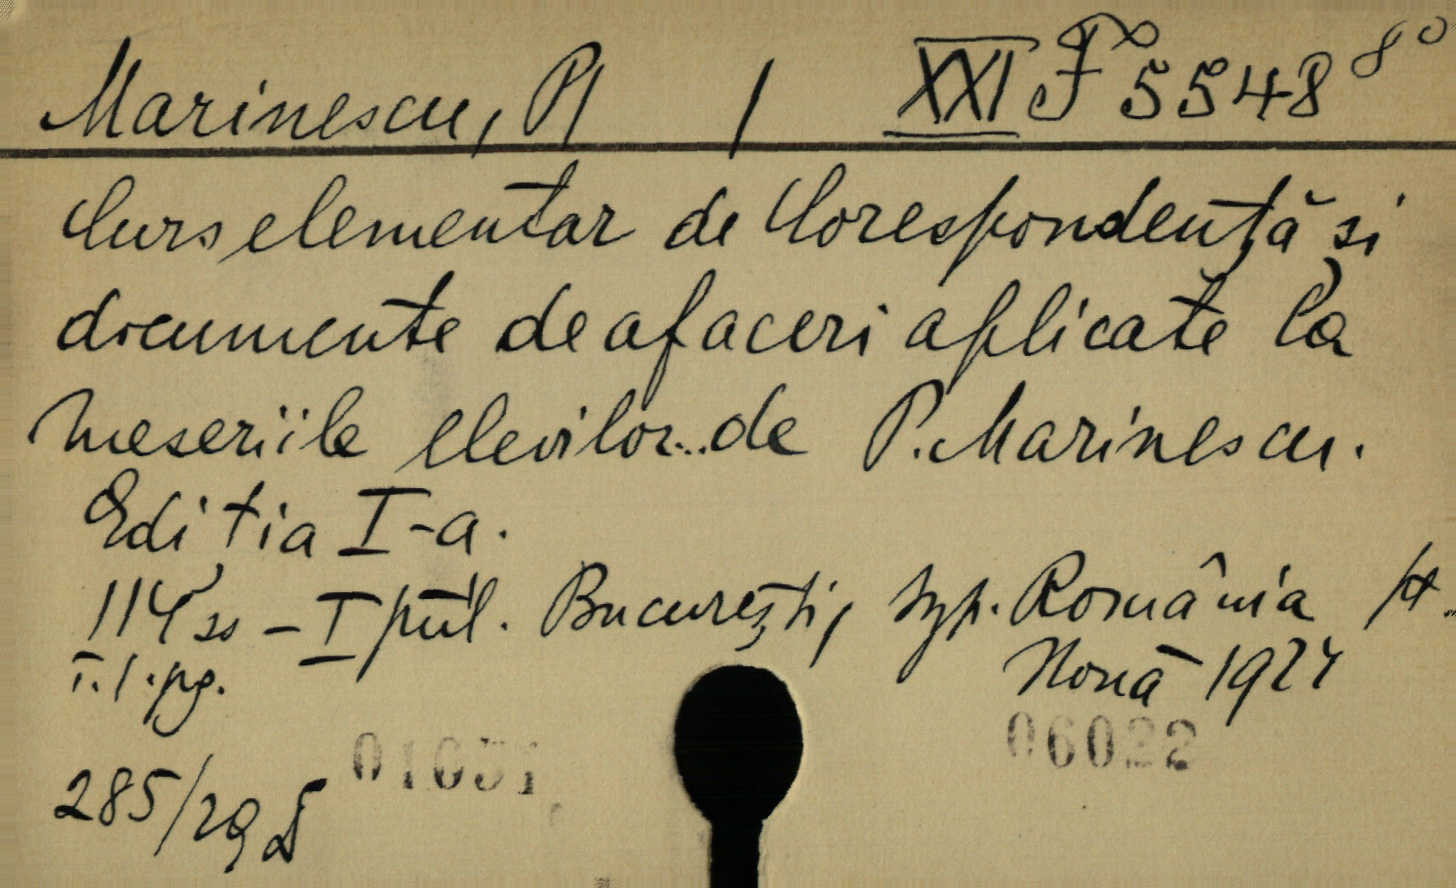 Marinescu, P / XXI F 5548 8°
Curs elementar de Corespondență și
documente de afaceri aplicate la
meseriile elevilor...de P. Marinescu.
Ediția I-a.
114 ss - I București, Typ. România
Nouă 1924
pg.
285/29
06022